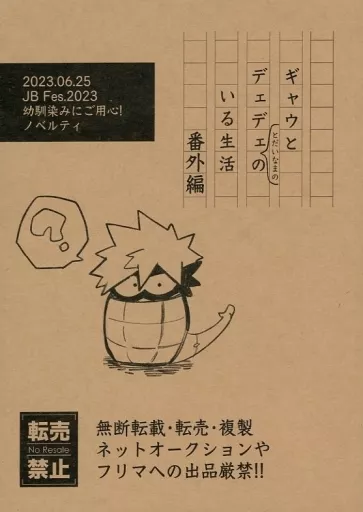 2023.06.25
JB Fes.2023
幼馴染みにご用心!
ノベルティ
ギャウと
デェデェの
とだいなまの
いる生活
番外編
?
転売
No Resale
禁止
無断転載・転売・複製
ネットオークションや
フリマへの出品厳禁!!